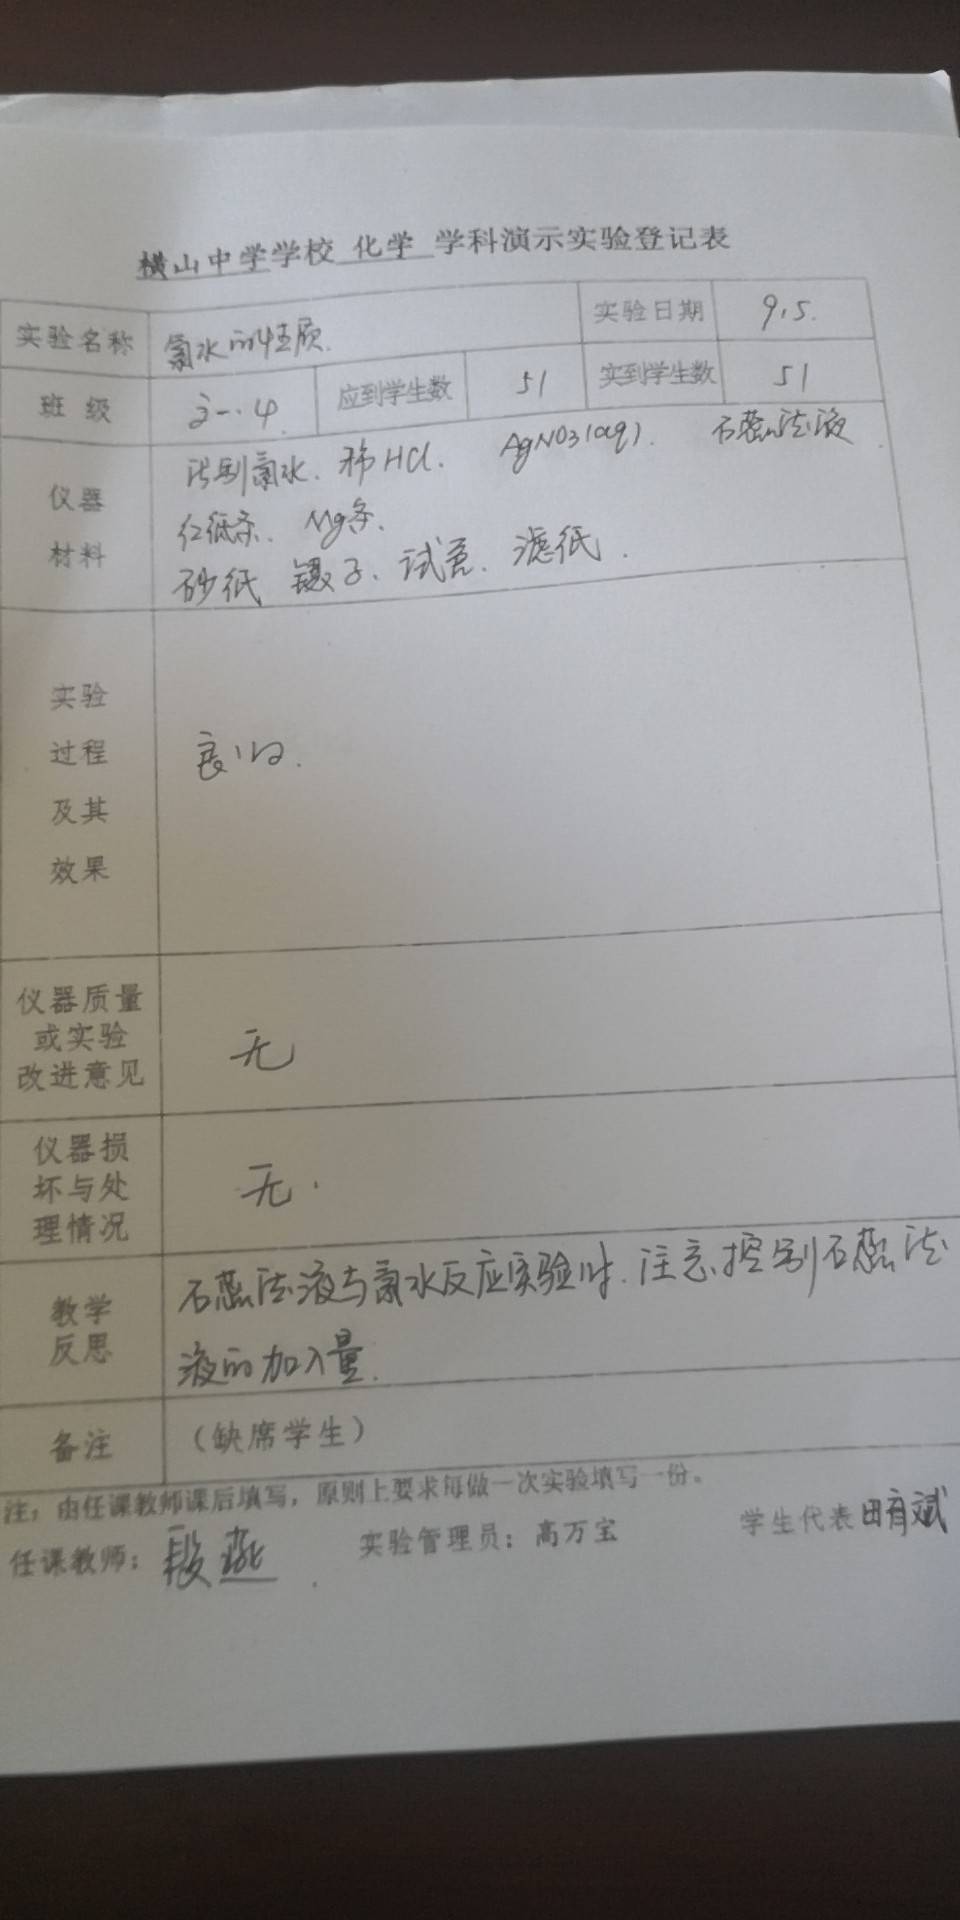 横山中学学校 化学 学科演示实验登记表
实验名称 氯水的性质. 实验日期 9.5.
班级 应到学生数 51 实到学生数 51
仪器 氯水. 稀HCl. AgNO3(aq). 石蕊试液
红纸条. Mg条.
材料 砂纸 镊子. 试管. 滤纸.
实验
过程 良好.
及其
效果
仪器质量
或实验 无
改进意见
仪器损
坏与处 无.
理情况
教学 石蕊试液与氯水反应实验时. 注意控制石蕊试
反思 液的加入量.
备注 (缺席学生)
注:由任课教师课后填写,原则上要求每做一次实验填写一份。
任课教师: 段燕. 实验管理员:高万宝 学生代表 田育斌